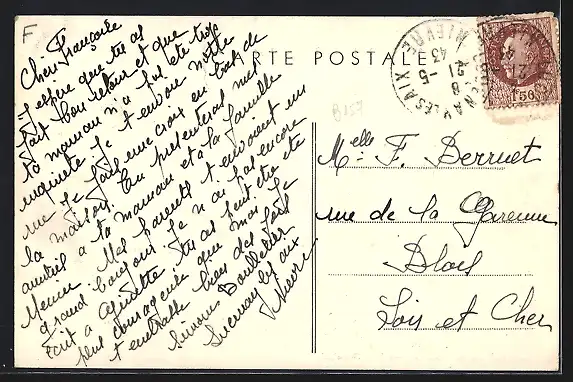 F
CARTE POSTALE
Chère Françoise
J'espère que tu as
fait bon retour et que
ta maman n'a pas été trop
enquiète je t'envoie notre
rue j'ai fait une croix en bas de
la maison. Tu présenteras mes
amitiés à ta maman et à la famille
Menier. Mes parents t'envoient un
grand bonjour. Je n'ai pas encore
écrit à Ginette tu as peut être été
plus courageuse que moi. Je
t'embrasse bien des fois
Simone Boulletier
Lucenay les aix
Nièvre
B157
LUCENAY LES AIX
NIEVRE
21 -5
43
1F50
Melle F. Berruet
rue de la Garenne
Blois
Loir et Cher